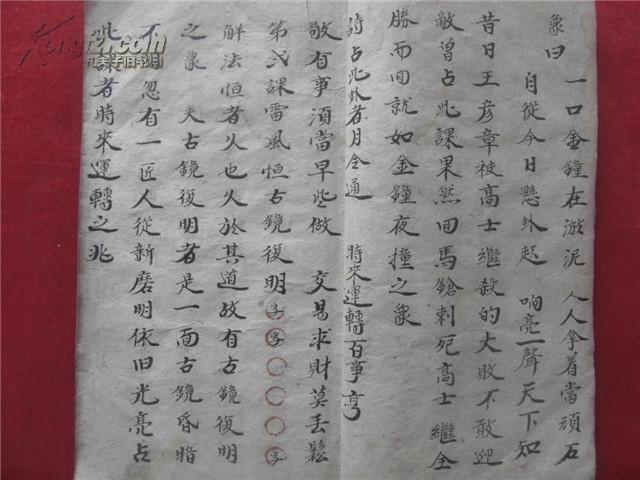 象曰 一口金鐘在淤泥 人人拿着當頑石
自從今日懸卦起 响亮一聲天下知
昔日王彦章被高士繼殺的大敗不敢迎
敵曾占此課果然回馬鎗刺死高士繼全
勝而回就如金鐘夜撞之象
詩占此卦者月令通 時來運轉百事亨
敬有事須當早些做 交易求財莫丢鬆
第弍課雷風恒古鏡復明 字字〇〇〇字
解法恒者久也久於其道故有古鏡復明
之象 夫古鏡復明者是一面古鏡昏暗
不明忽有一匠人從新磨明依旧光亮占
此課者時來運轉之兆